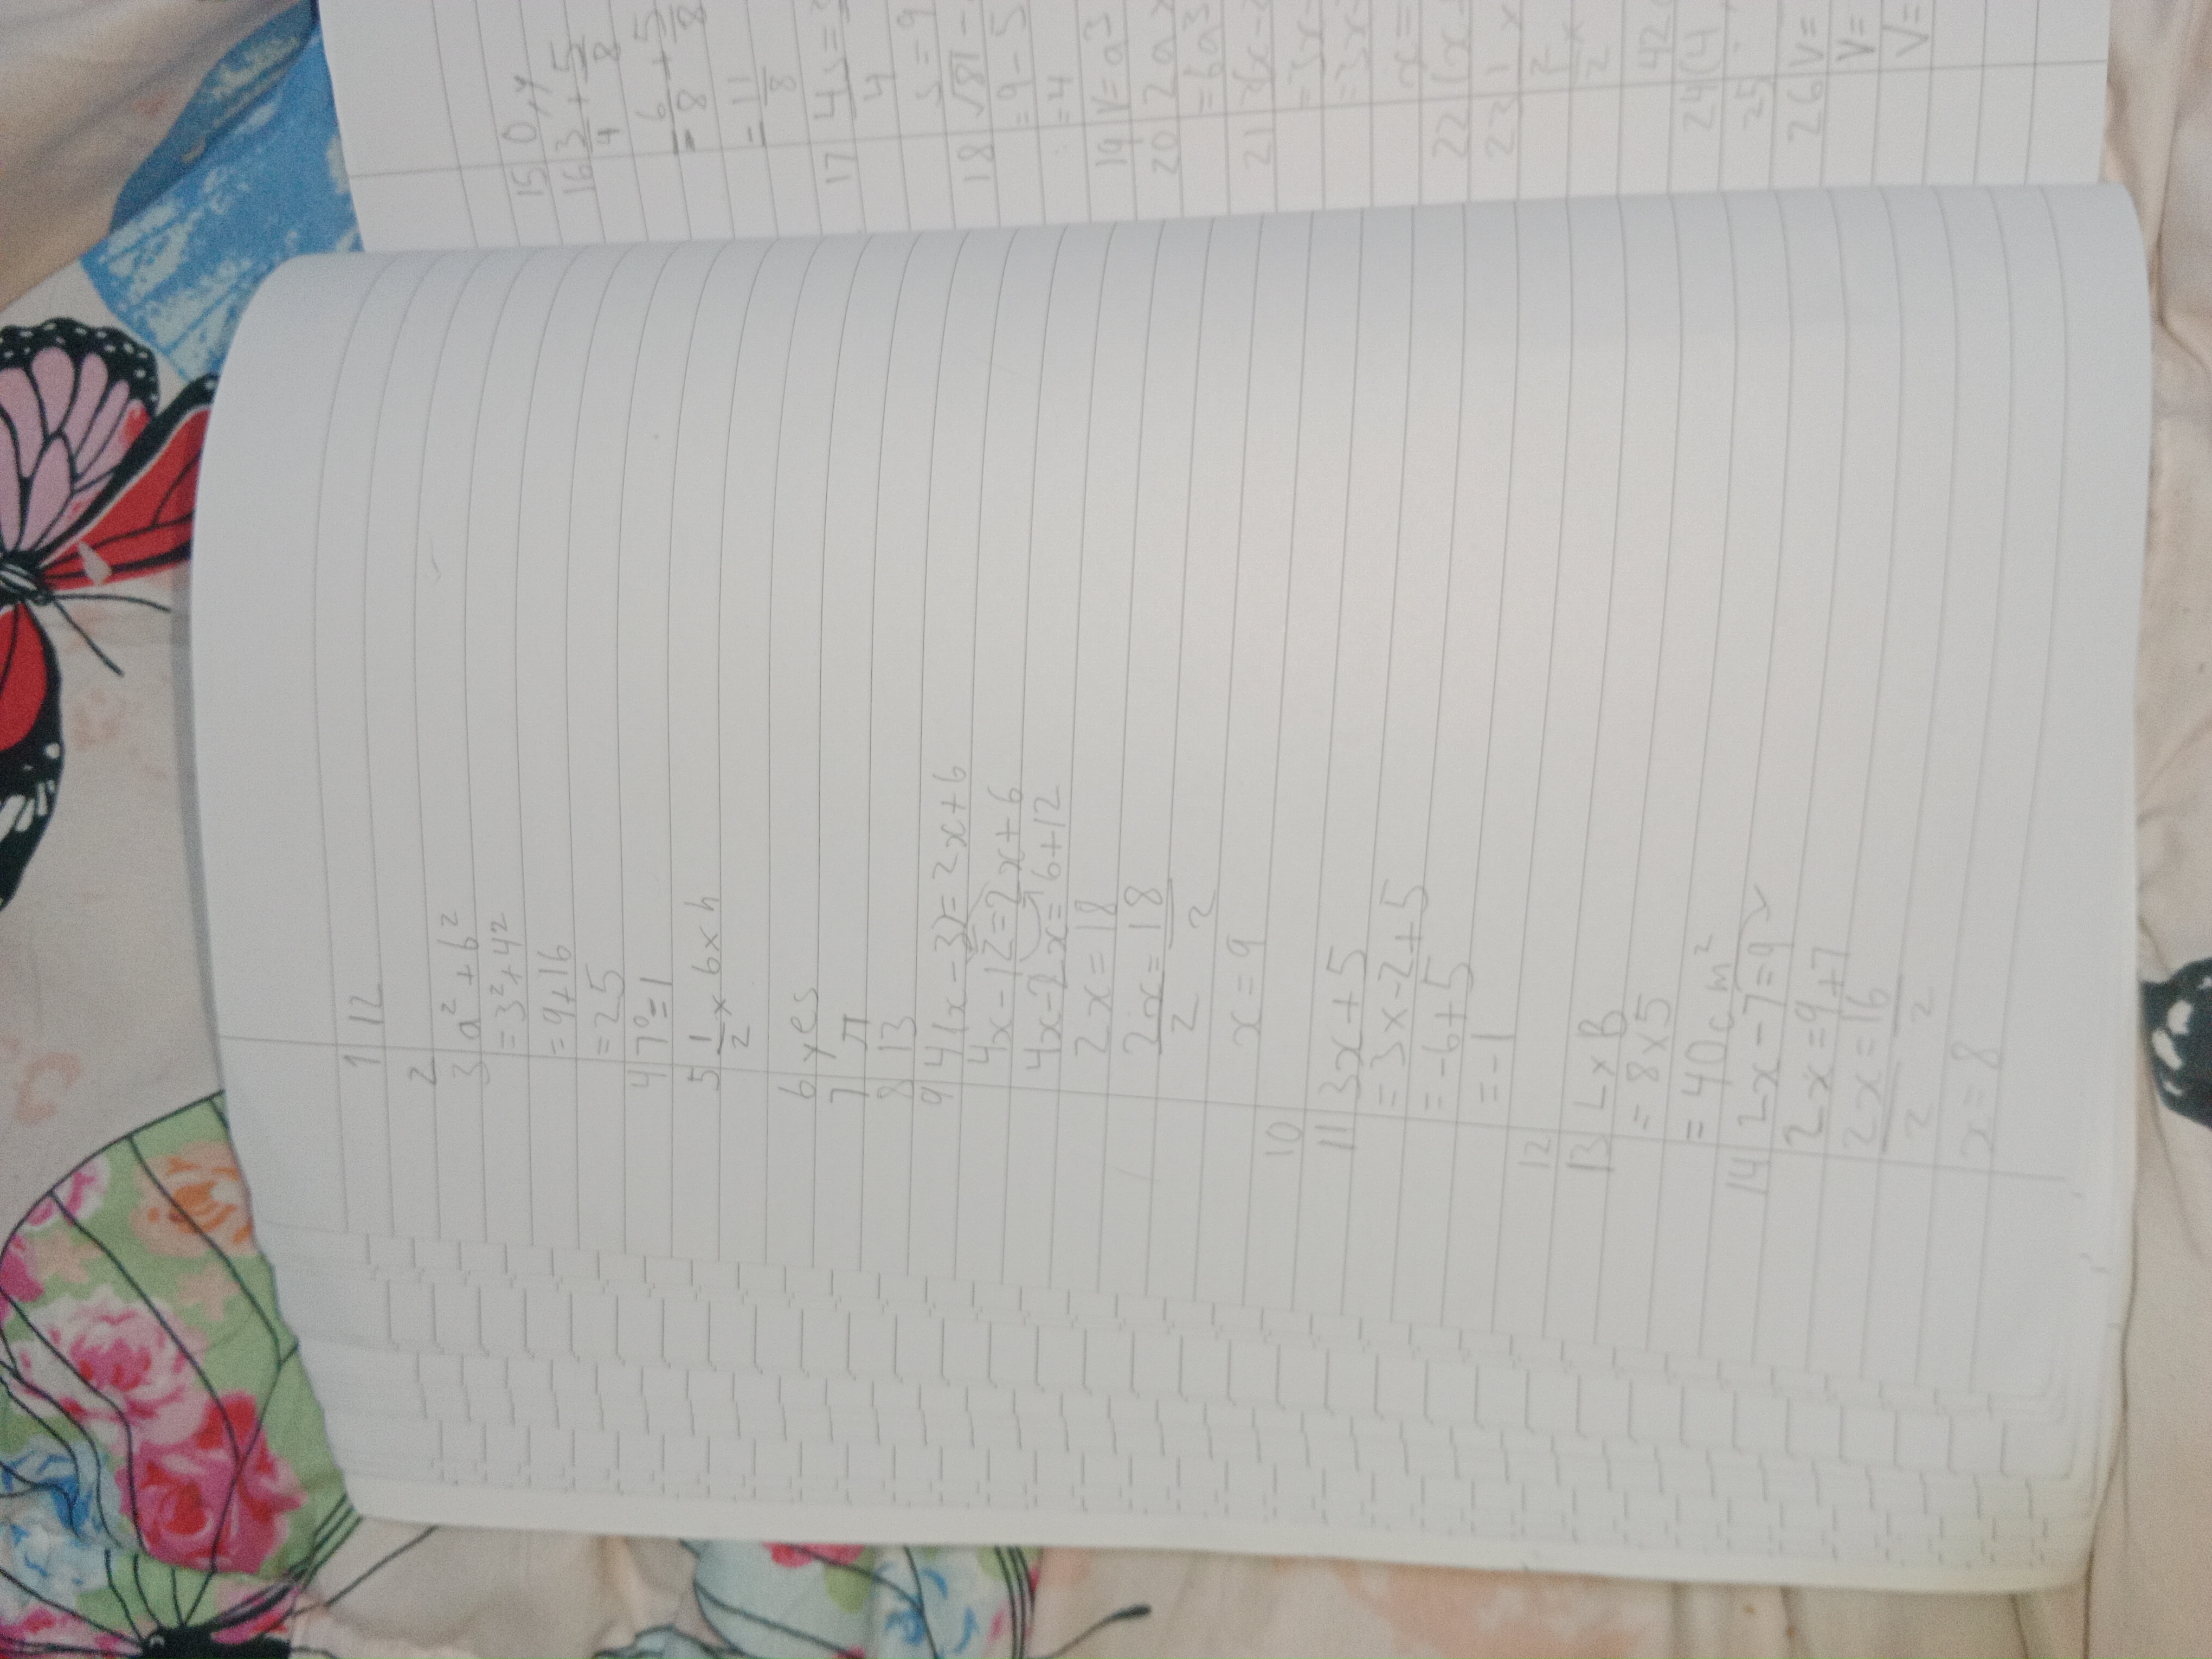 1 12
2
3 a² + b²
= 3² + 4²
= 9 + 16
= 25
4 7⁰ = 1
5 1/2 x 6 x h
6 yes
7 π
8 13
9 4(x - 3) = 2x + 6
4x - 12 = 2x + 6
4x - 2x = 6 + 12
2x = 18
2x = 18
2 2
x = 9
10
11 3x + 5
= 3 x - 2 + 5
= -6 + 5
= -1
12
13 L x B
= 8 x 5
= 40cm²
14 2x - 7 = 9
2x = 9 + 7
2x = 16
2 2
x = 8
15 0,4
16 3/4 + 5/8
= 6/8 + 5/8
= 11/8
17 4s =
4
s = 9
18 √81 -
= 9 - 5
= 4
19 V = a3
20 2a x
= 6a3
21 3(x -
= 3x -
= 3x -
x =
22 (x -
23 1/2 x
2 x
42
24 (4
25
26 V =
V =
V =